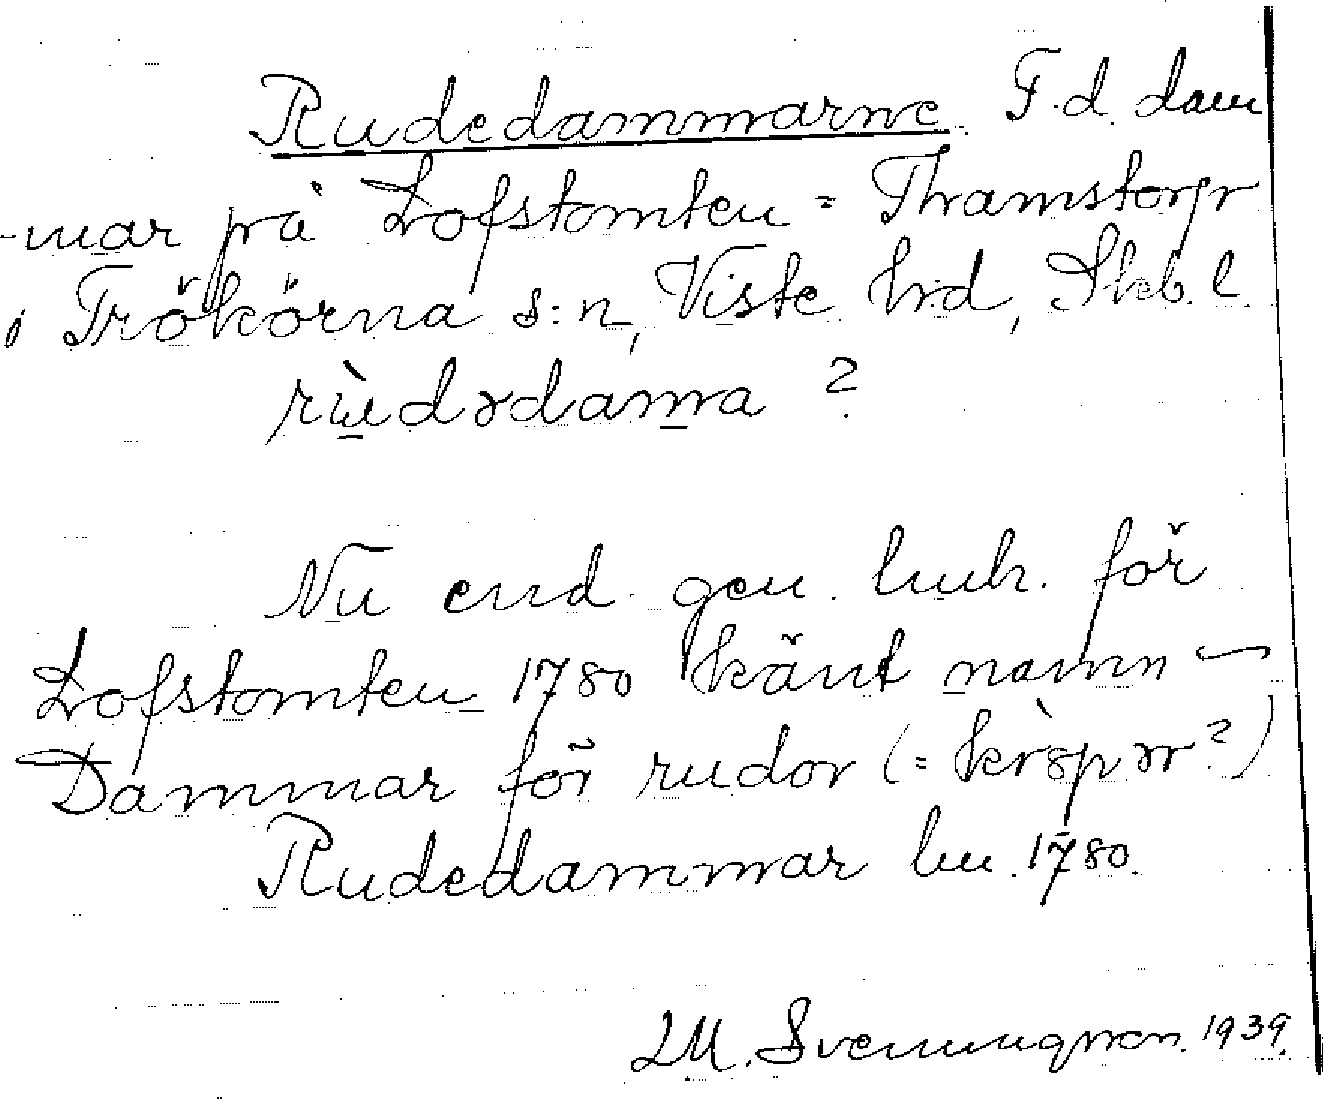 Rudedammarne F.d. dam
-mar på Lofstomten = Thamstorp
i Trökörna s:n, Viste hd, Skb. l.
rùdədama ?
Nu end. gen. huh. för
Lofstomten 1780 känt namn –
Dammar för rudor (=
Rudedammar hu 1780.
LM. Svenungsson. 1939.